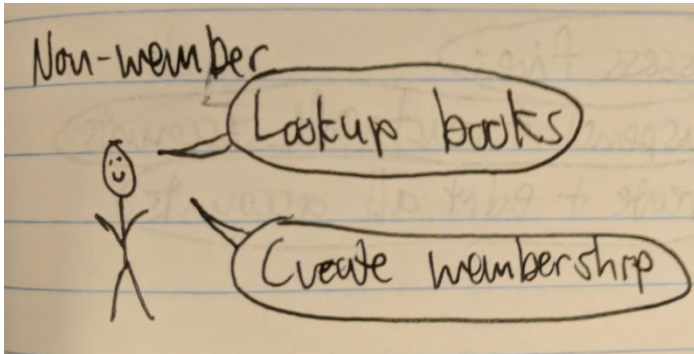 Non-member
Lookup books
Create membership